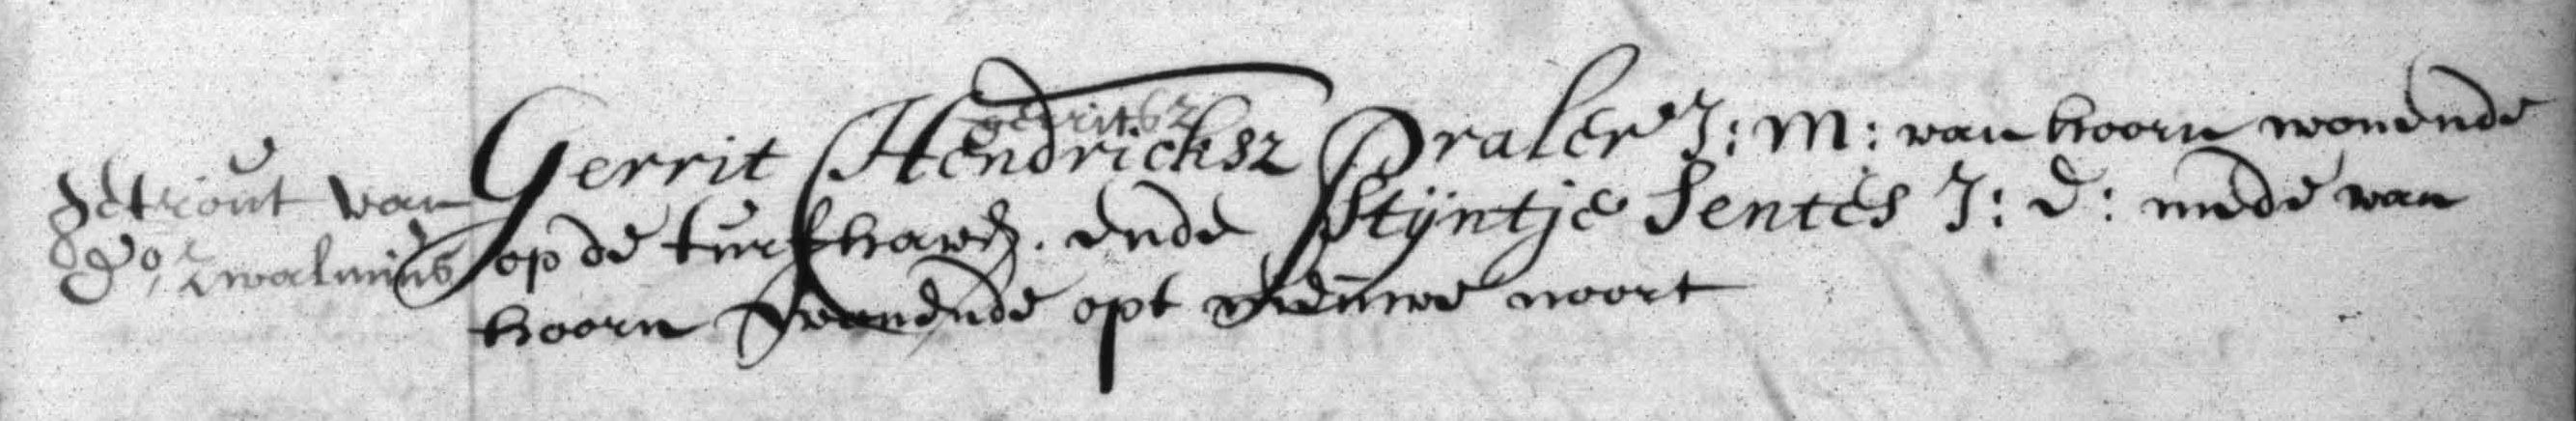 gerritsz
Gerrit Hendricksz Praler J: M: van hoorn wonende
getrout van
op de turfhaven. ende Stijntje Sentes J: D: mede van
Do, Zwalmius
hoorn wonende opt nieuwe noort